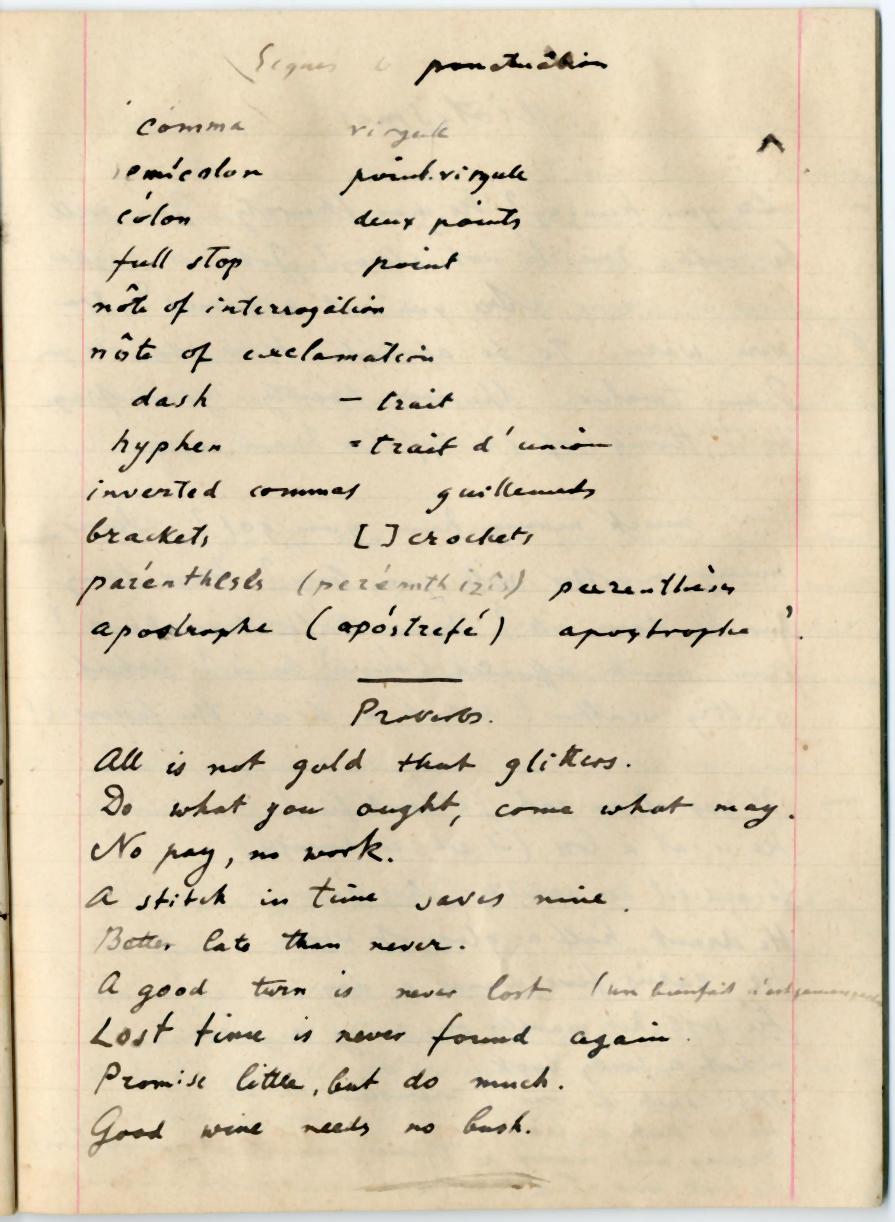 Signes de ponctuâtion
comma virgule
semícolon point.virgule
cólon deux points
full stop point
nôte of interrogátion
nôte of exclamation
dash – trait
hyphen = trait d'union
inverted commas guillemets
brackets [ ] crochets
parénthesis (perénthizis) parenthèses
apostrophe (apóstrefé) apostrophe '.
Proverbs.
All is not gold that glitters.
Do what you ought, come what may.
No pay, no work.
A stitch in time saves nine.
Better late than never.
A good turn is never lost (un bienfait n'est jamais perdu
Lost time is never found again.
Promise little, but do much.
Good wine needs no bush.